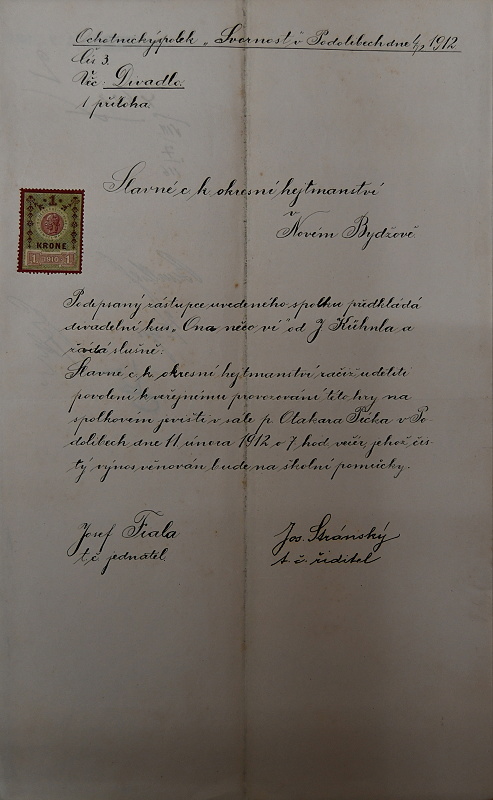 Ochotnický spolek "Svornost" v Podolibech dne 1/2 1912
Čís 3.
Věc: Divadlo.
1 příloha.
Slavné c. k. okresní hejtmanství
v
Novém Bydžově.
1
KRONE
1 1910 1
Podepsaný zástupce uvedeného spolku předkládá
divadelní kus "Ona něco ví" od J Kühnla a
žádá slušně:
Slavné c. k. okresní hejtmanství račiž uděliti
povolení k veřejnímu provozování této hry na
spolkovém jevišti v sále p. Otakara Pička v Po-
dolibech dne 11. února 1912 o 7 hod večer, jehož čis-
tý výnos věnován bude na školní pomůcky.
Josef Fiala
t. č. jednatel.
Jos. Stránský
t. č. řiditel